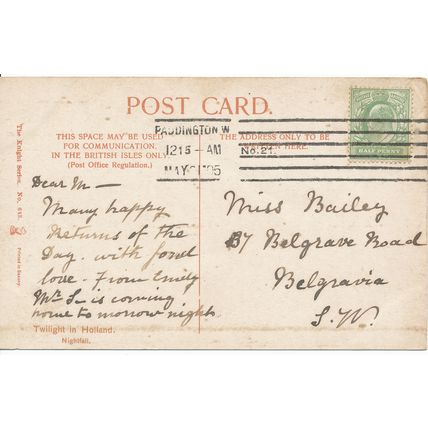 POST CARD.
THIS SPACE MAY BE USED
FOR COMMUNICATION.
IN THE BRITISH ISLES ONLY
(Post Office Regulation.)
THE ADDRESS ONLY TO BE
WRITTEN HERE.
PADDINGTON W
12 15 - AM
MAY 05
No. 21.
HALF PENNY
The Knight Series. No. 643.
Printed in Saxony.
Dear M —
Many happy
Returns of the
Day - with fond
love - From Emily
Mr S— is coming
home to morrow night.
Twilight in Holland.
Nightfall.
Miss Bailey
37 Belgrave Road
Belgravia
S.W.